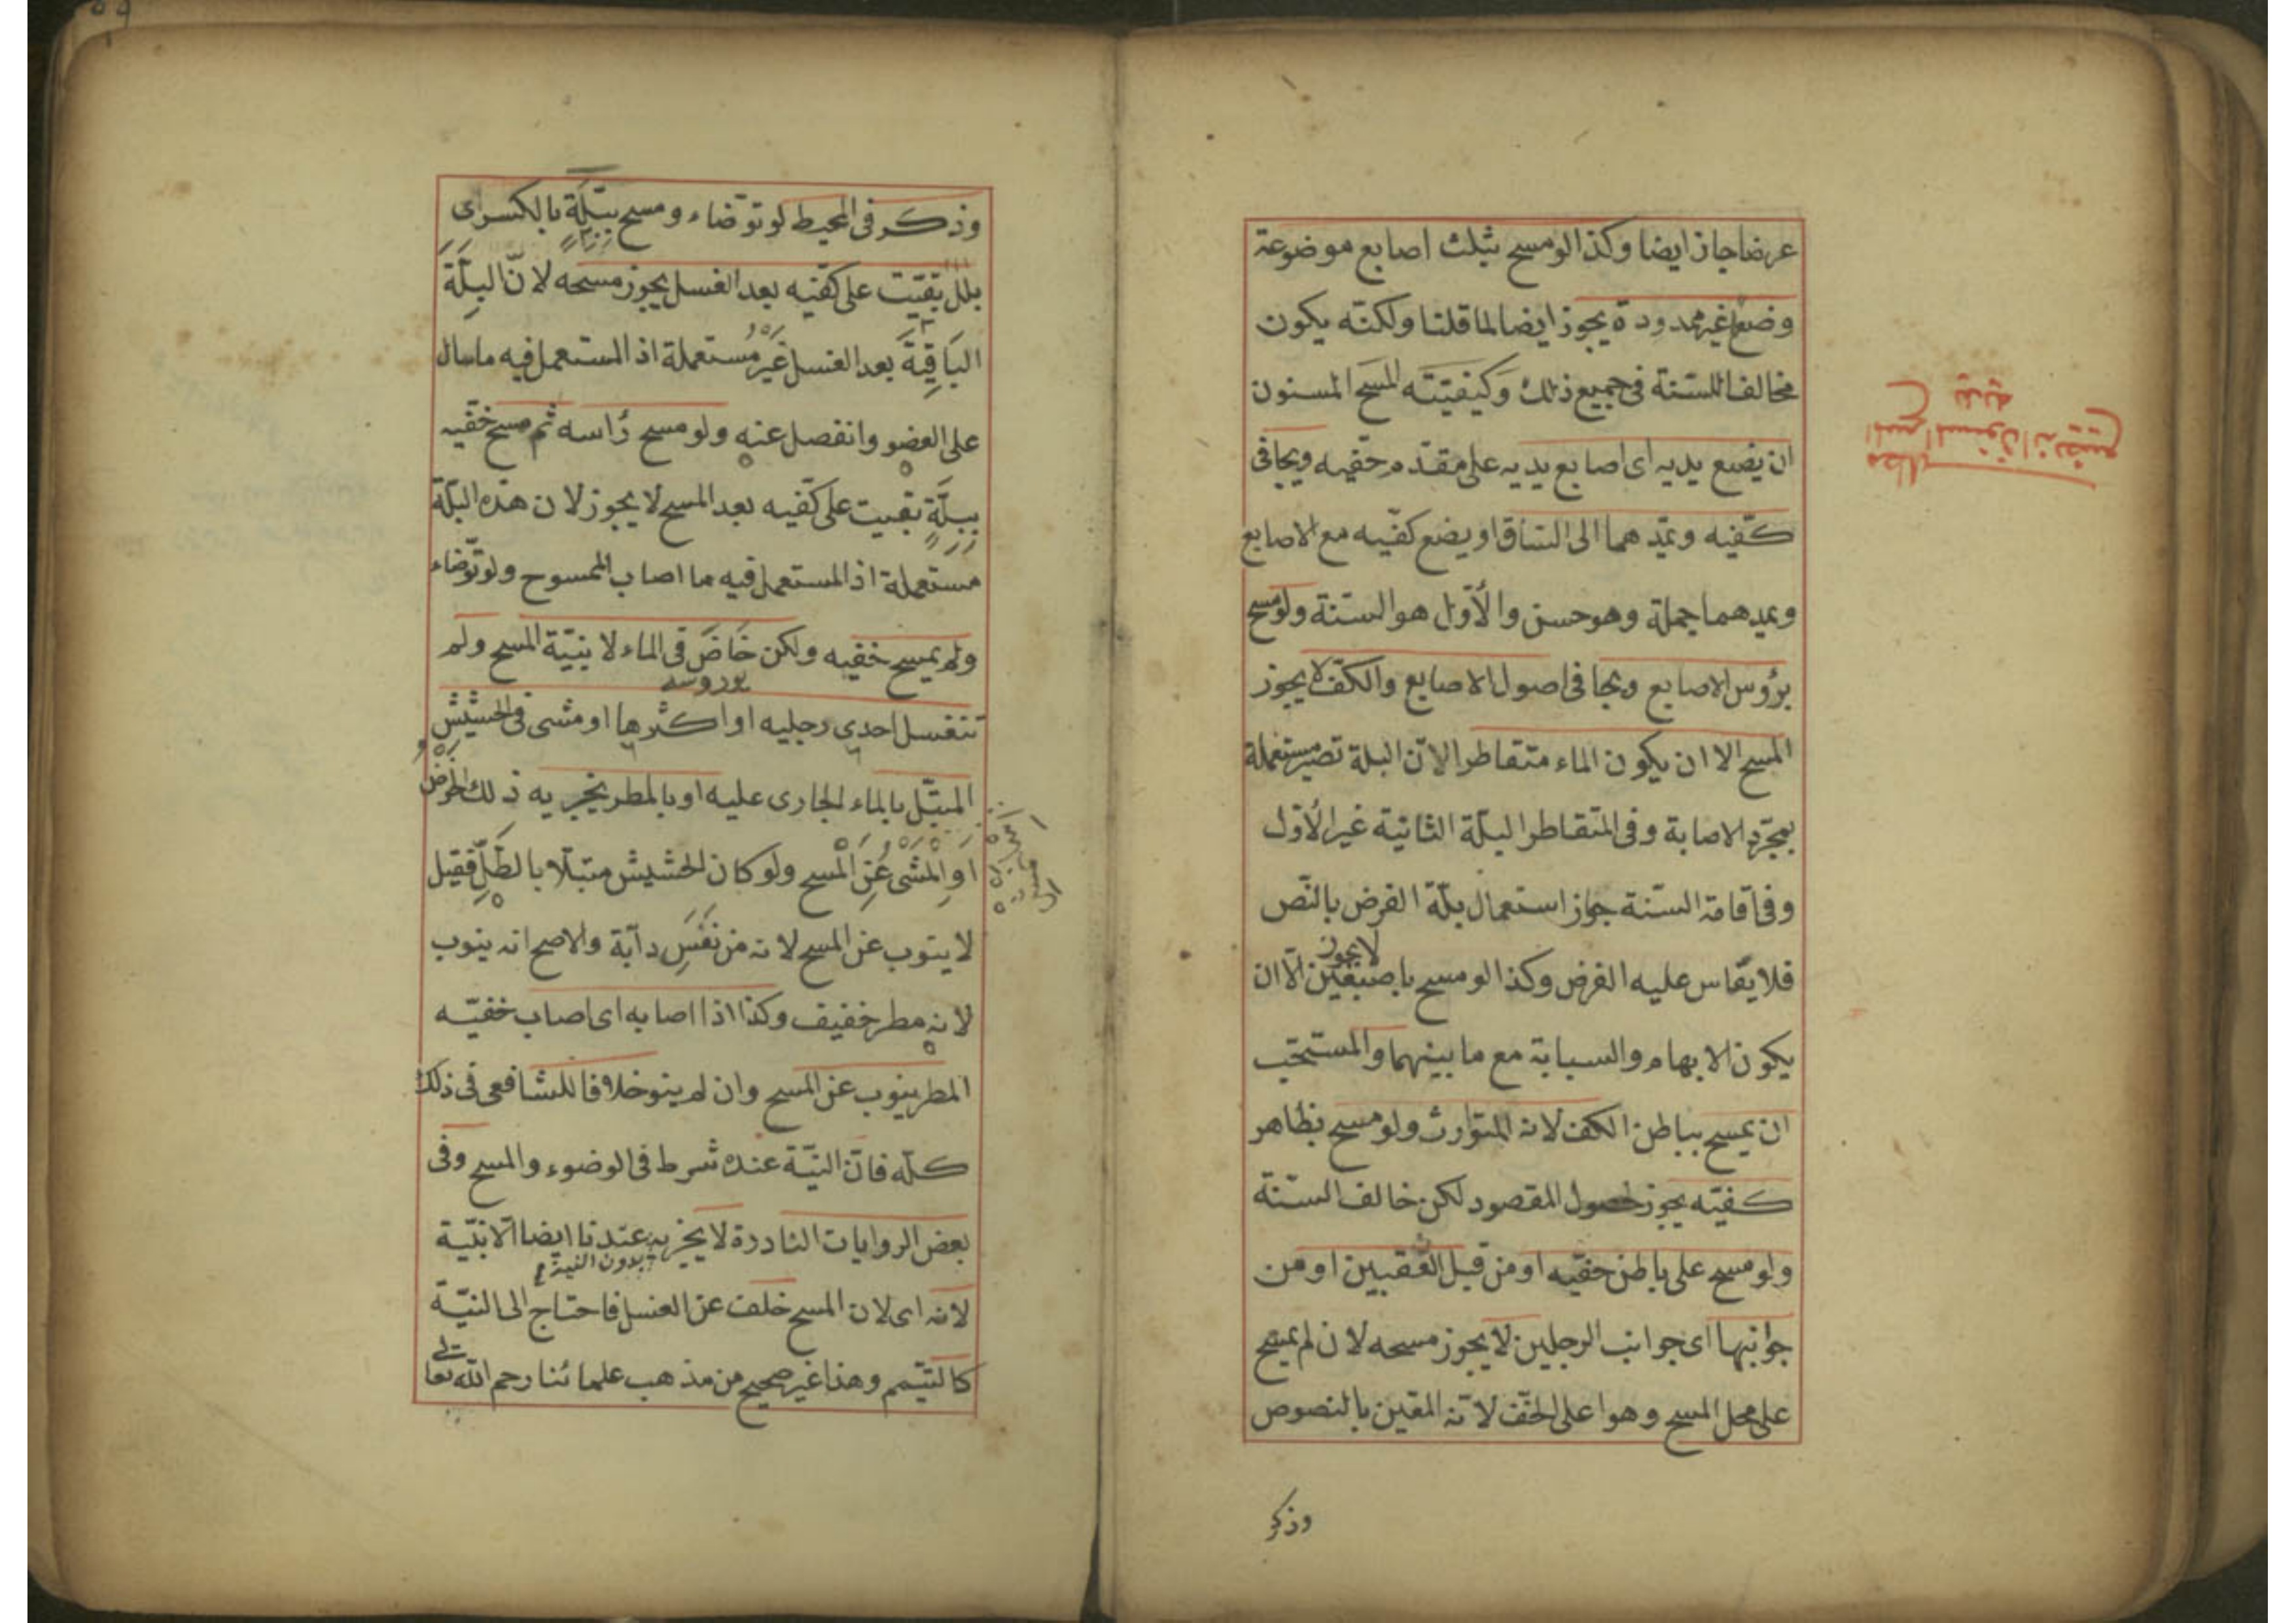 عرضا جاز ايضا وكذا لو مسح بثلث اصابع موضوعة
وضعا غير ممدودة يجوز ايضا لما قلنا ولكنّه يكون
مخالفا للسّنة فى جميع ذلك وَكيفيّتَه المسَح المسنون
ان يضع يديه اى اصابع يديه على مقدّم خفّيه ويجافى
كفّيه ويمّدهما الى السّاق او يضع كفّيه مع الاصابع
ويمدهما جملة وهو حسن والأوّل هو السّنة ولو مسح
برؤس الاصابع ويجافى اصول الاصابع والكفّ لا يجوز
المسح الا ان يكون الماء متقاطرا لانّ البلة تصير مستعملة
بمجرّد الاصابة وفى المتقاطر البلّة الثانية غير الأوّل
وفى اقامة السّنة جواز استعمال بلّة الفرض بالنّص
فلا يقاس عليه الفرض وكذا لو مسح باصبعَين لا يجوز الّا ان
يكون الابهام والسبابة مع ما بينهما والمستحّب
ان يمسح بباطن الكف لانه المتوارث ولو مسح بظاهر
كفّيه يجوز لحصول المقصود لكن خالف السّنة
ولو مسح على باطن خفّيه او من قبل العقبين او من
جوانبها اى جوانب الرجلين لا يجوز مسحه لان لم يمسح
على محل المسح وهو اعلى الخّف لانّه المعّين بالنصوص
وذكر
المسح المسنون ان يضع
يديه
وذكر فى المحيط لو توّضاء ومسح ببلّةٍ بالكسر اى
بلل بقيّت على كفّيه بعد الغسل يجوز مسحه لانّ البلّةَ
البَاقِيَةَ بعد الغسل غَيْرُ مُستعملة اذ المستعمل فيه ما سال
على العضو وانفصل عنه ولو مسح رأسه ثم مسح خفّيه
ببلّةٍ بقيت على كفّيه بعد المسح لا يجوز لان هذه البلّة
مستعملة اذ المستعمل فيه ما اصاب الممسوح ولو توّضاء
ولم يمسح خفيه ولكن خَاضَ فى الماء لا بنيّة المسح ولم
يوروسه
تنغسل احدى رجليه او اكثرها او مشى فى الحشيشِ
المبتّل بالماء الجارى عليه او بالمطر يجزيه ذلك الخوْضُ
اوِ الْمشْىُ عَنِ الْمسح ولو كان الحشيش متبلّا بالطَّلِّ فقيل
لا ينوب عن المسح لانه من نَفَسِ دابّة والاصح انه ينوب
لانه مطر خفيف وكذا اذا اصابه اى اصاب خفيّه
المطر ينوب عن المسح وان لم ينو خلافا للشافعى فى ذلك
كلّه فانّ النيّة عنده شرط فى الوضوء والمسح وفى
بعض الروايات النادرة لا يجزيه عندنا ايضا الّا بنيّة
بدون النية
لانه اى لان المسح خلف عن الغسل فاحتاج الى النيّة
كالتيّمم وهذا غير صحيح من مذهب علمائنا رحم اللّه تعالى